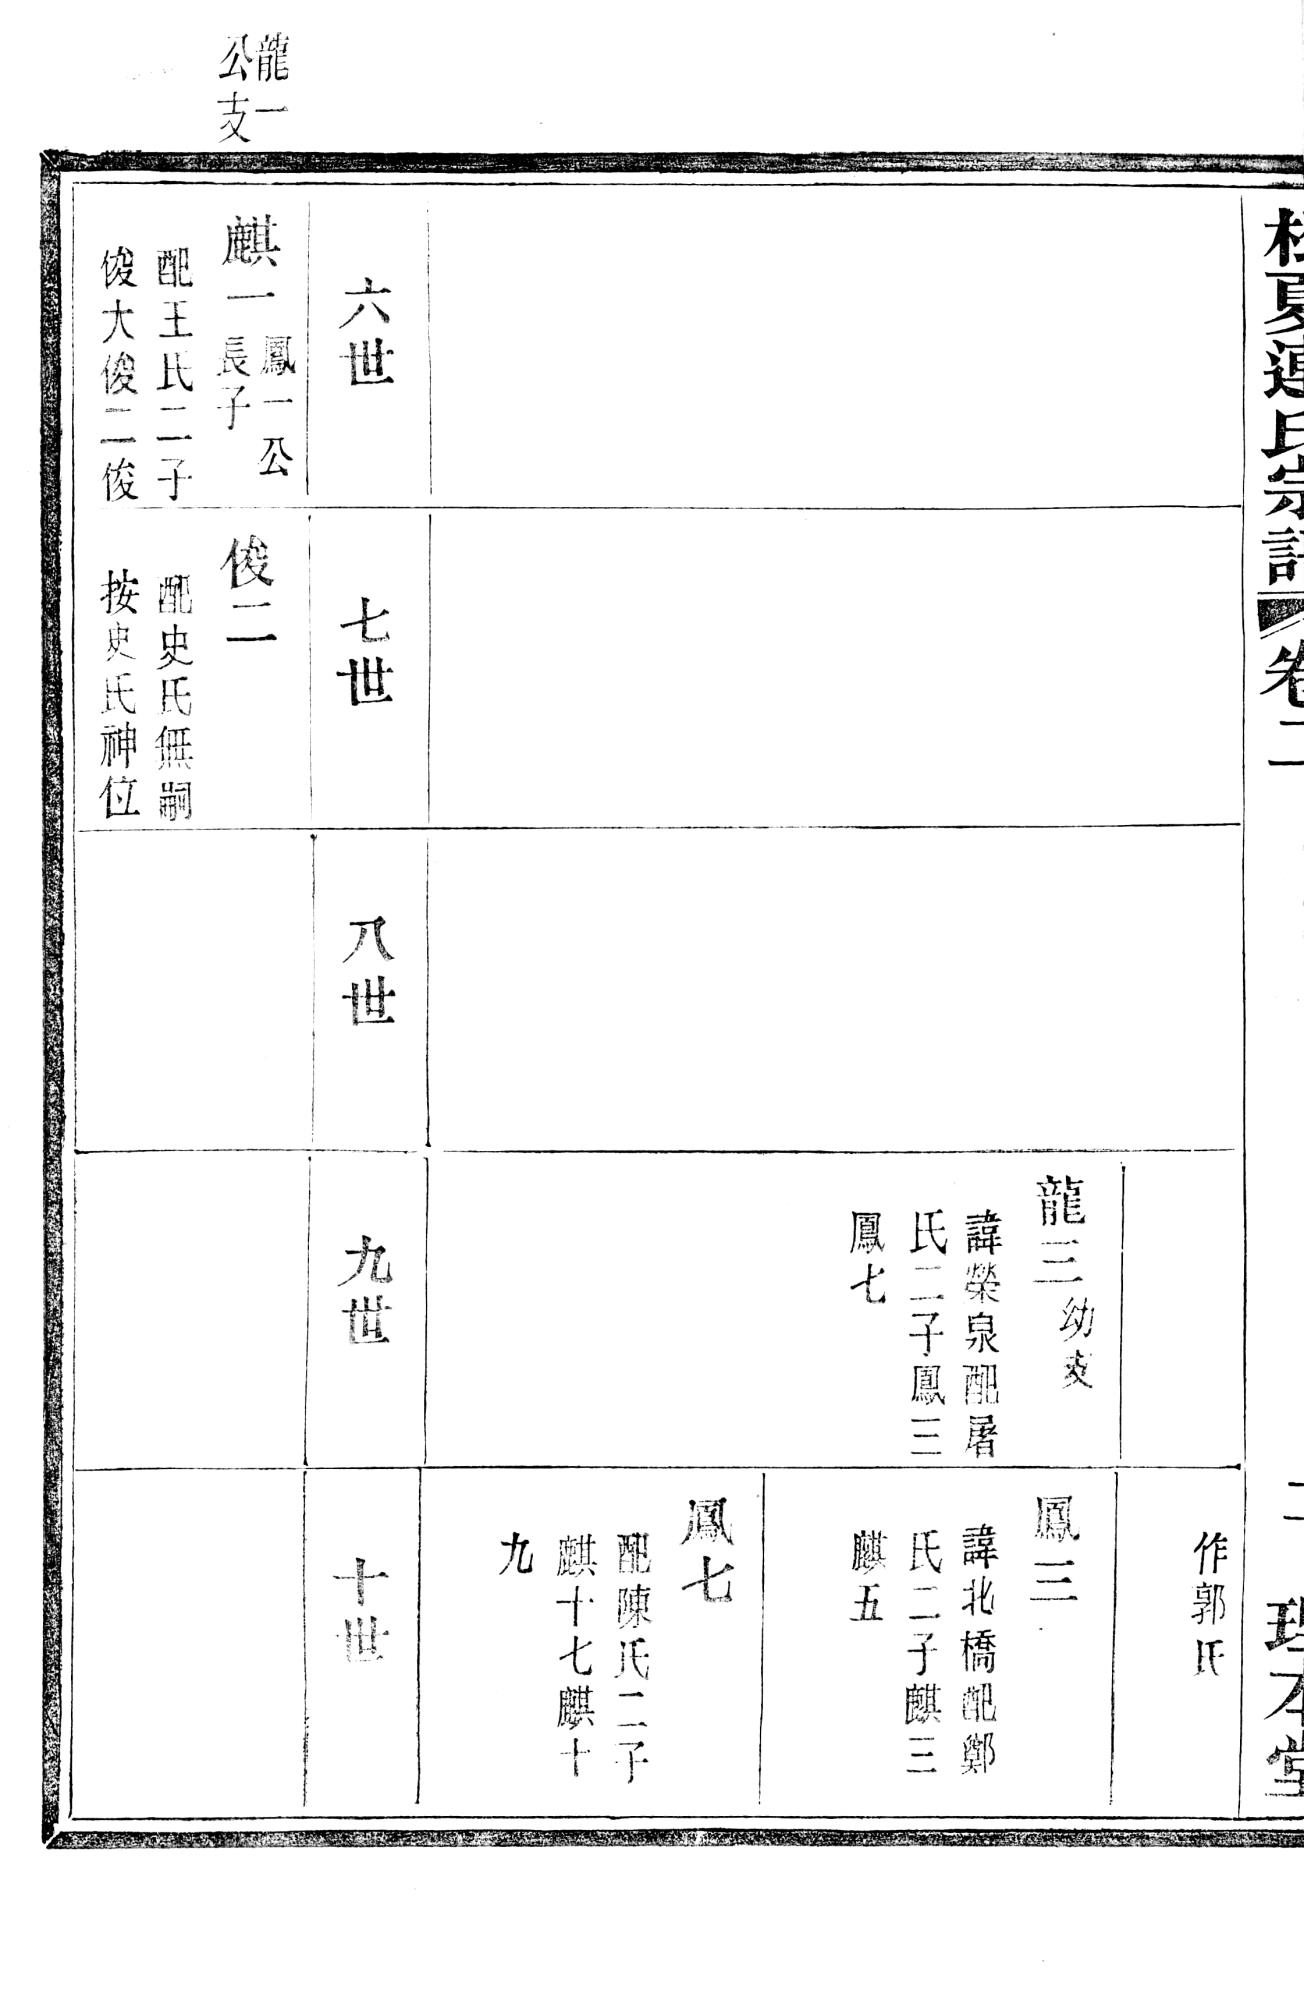 夏連氏宗譜
卷二
二
理本堂
作郭氏
龍三幼支
諱榮泉配屠
氏二子鳳三
鳳七
鳳三
諱北橋配鄭
氏二子麒三
麒五
鳳七
配陳氏二子
麒十七麒十
九
六世
七世
八世
九世
十世
龍一
公支
麒一鳳一公
長子
配王氏二子
俊大俊二俊
俊二
配史氏無嗣
按史氏神位